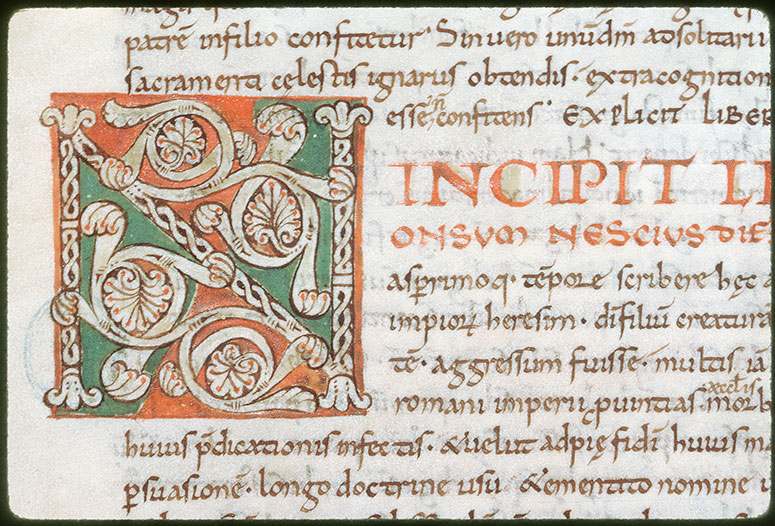 patrē infilio confitetur· Sinuero unūdm̄ adsolitariı
sacramenti cęlestis ignarus obtendis· extracognition
esse in confitens· EXPLICIT LIBER
N INCIPIT LI
ONSUM NESCIUS DIF
asperrimoq· tēpore scribere hęc a
impiorų heresim· dī filiū creatura
tē· aggressum fuisse· multis ia
romani imperii ꝓuintias æccl̄is morb
huius p̄dicationis infectis· & uelut adpię fidī huius m
ꝑsuasionē· longo doctrine usu & ementito nomine